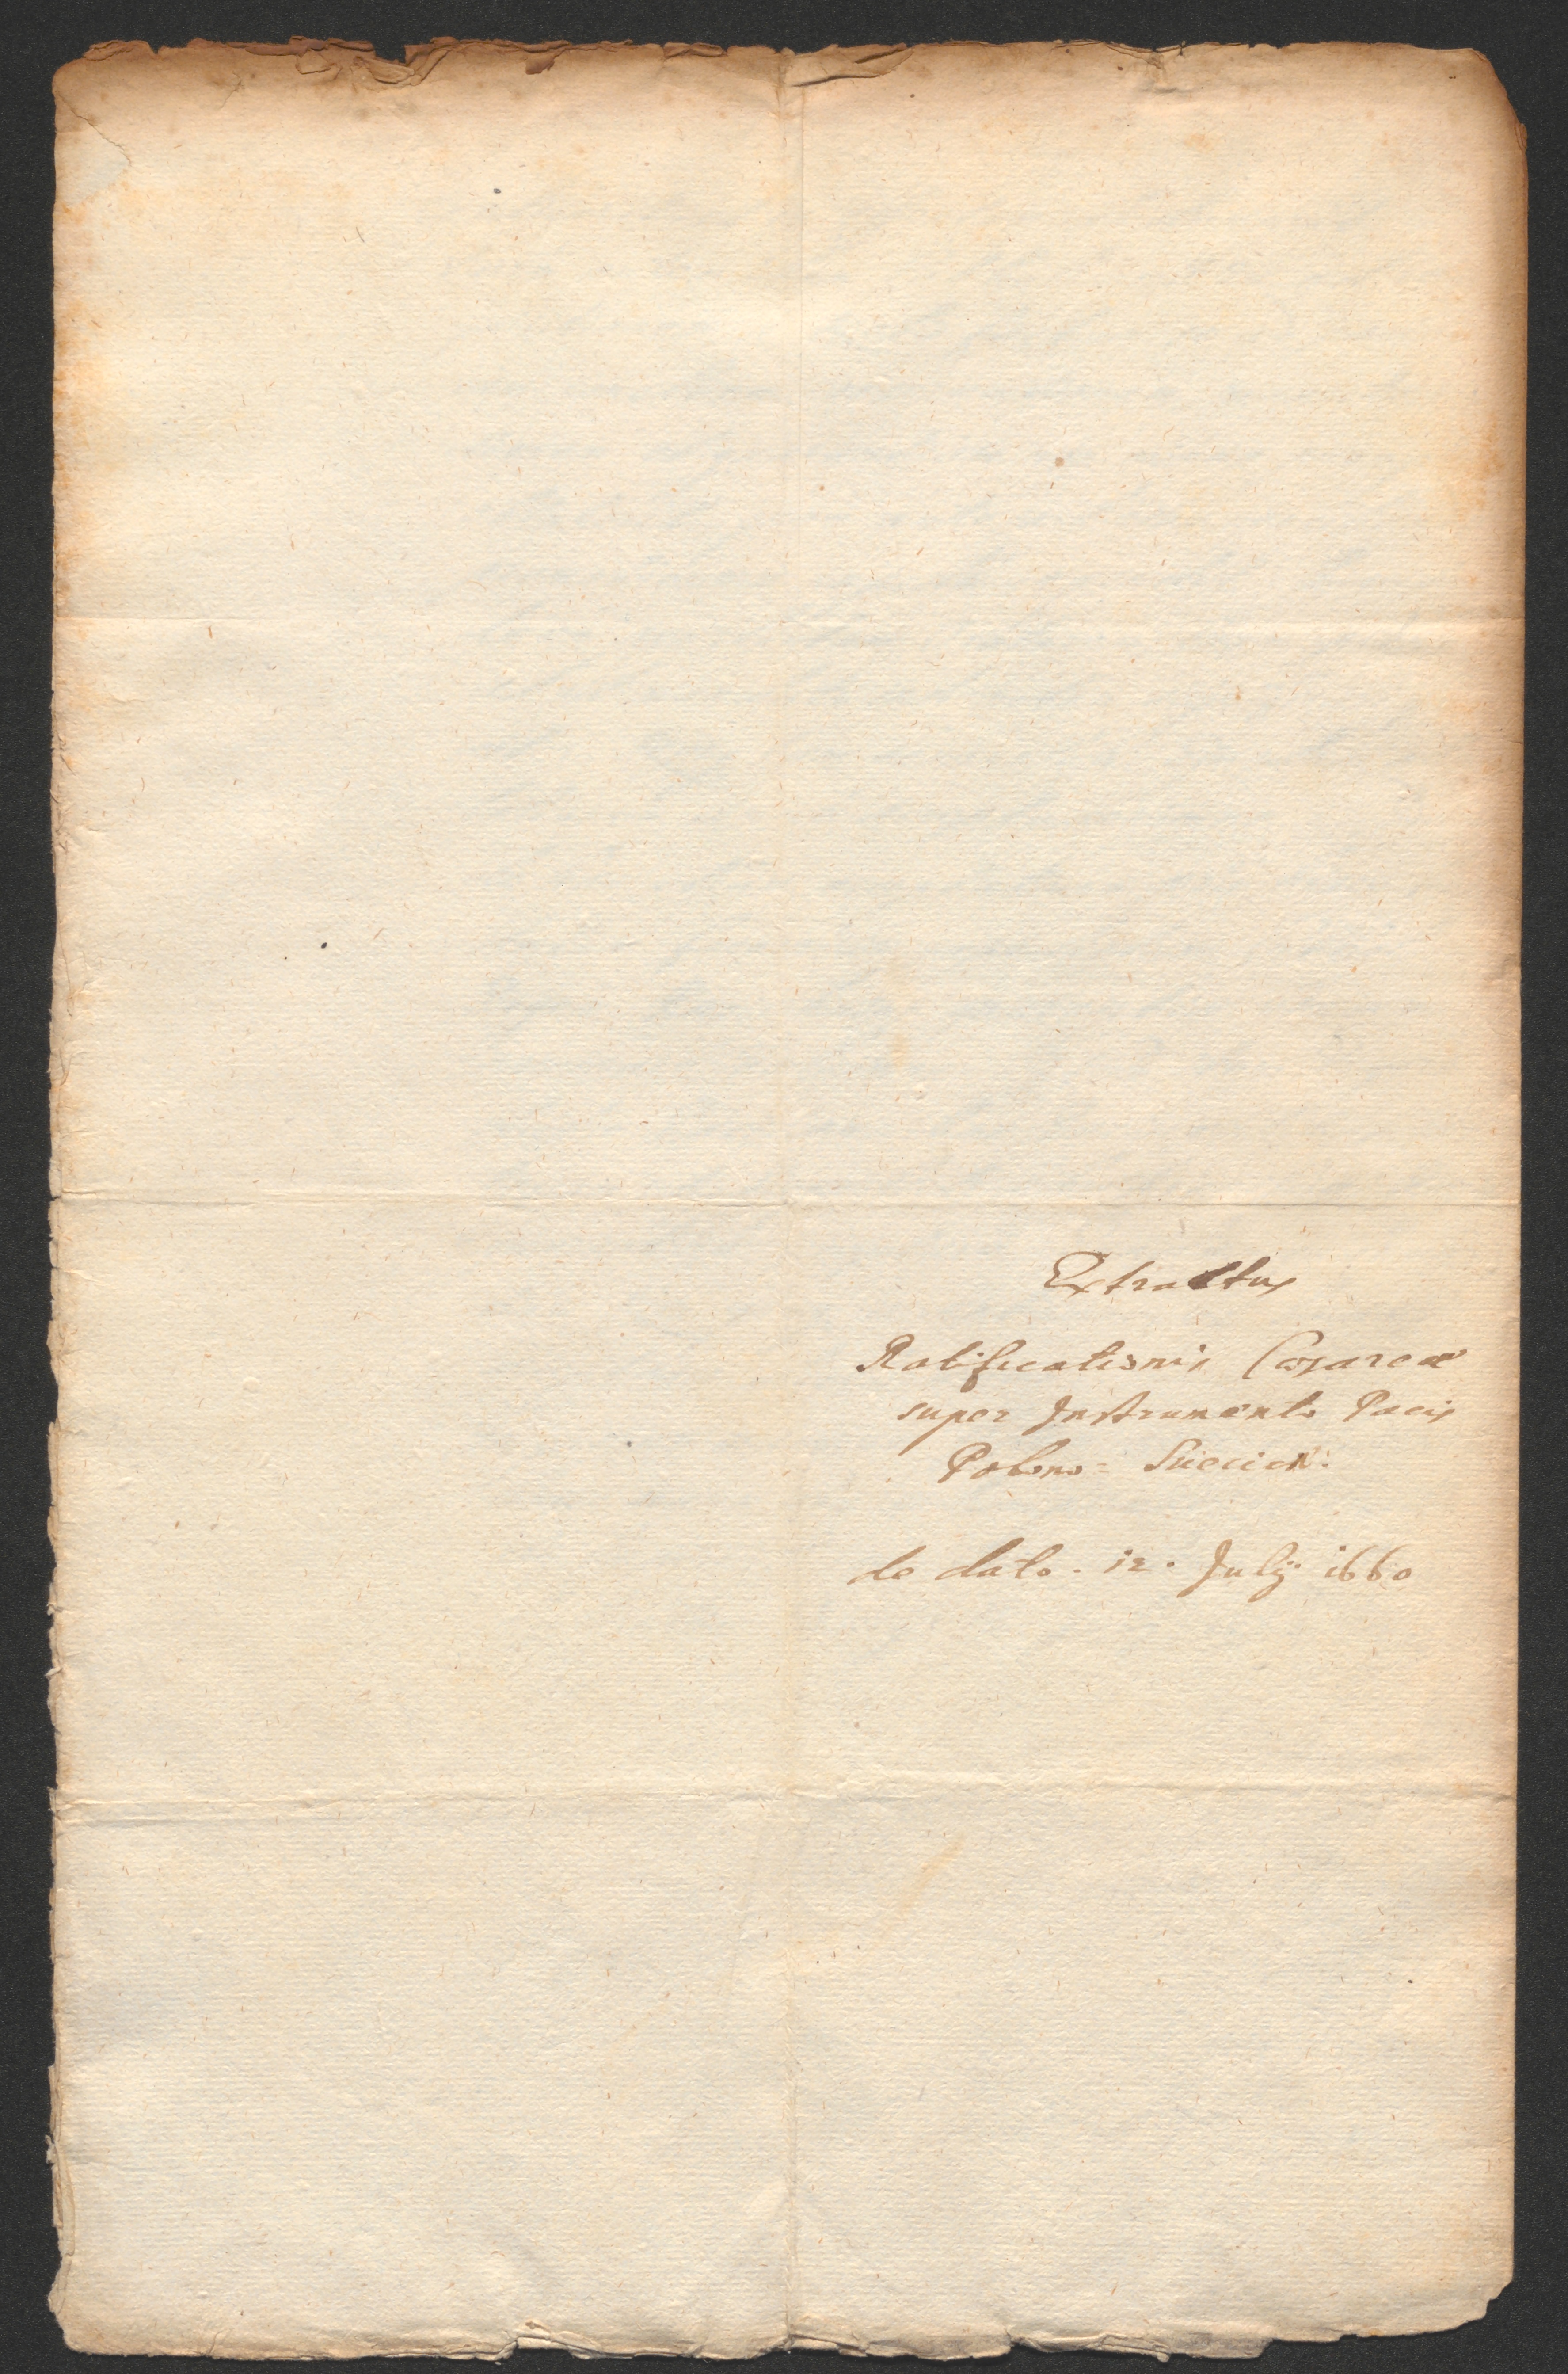 Extractus
Ratificationis Cæsareæ
super Instrumento Pacis
Polono= Suecicæ:
de dato. 12. Julij 1660